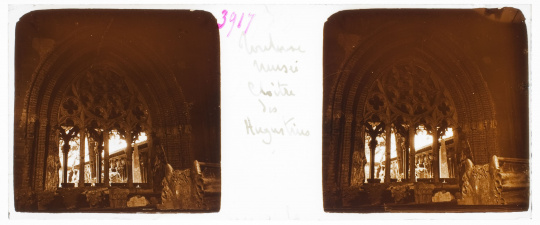 3917
Toulouse
Musée
Cloitre
des
Augustins